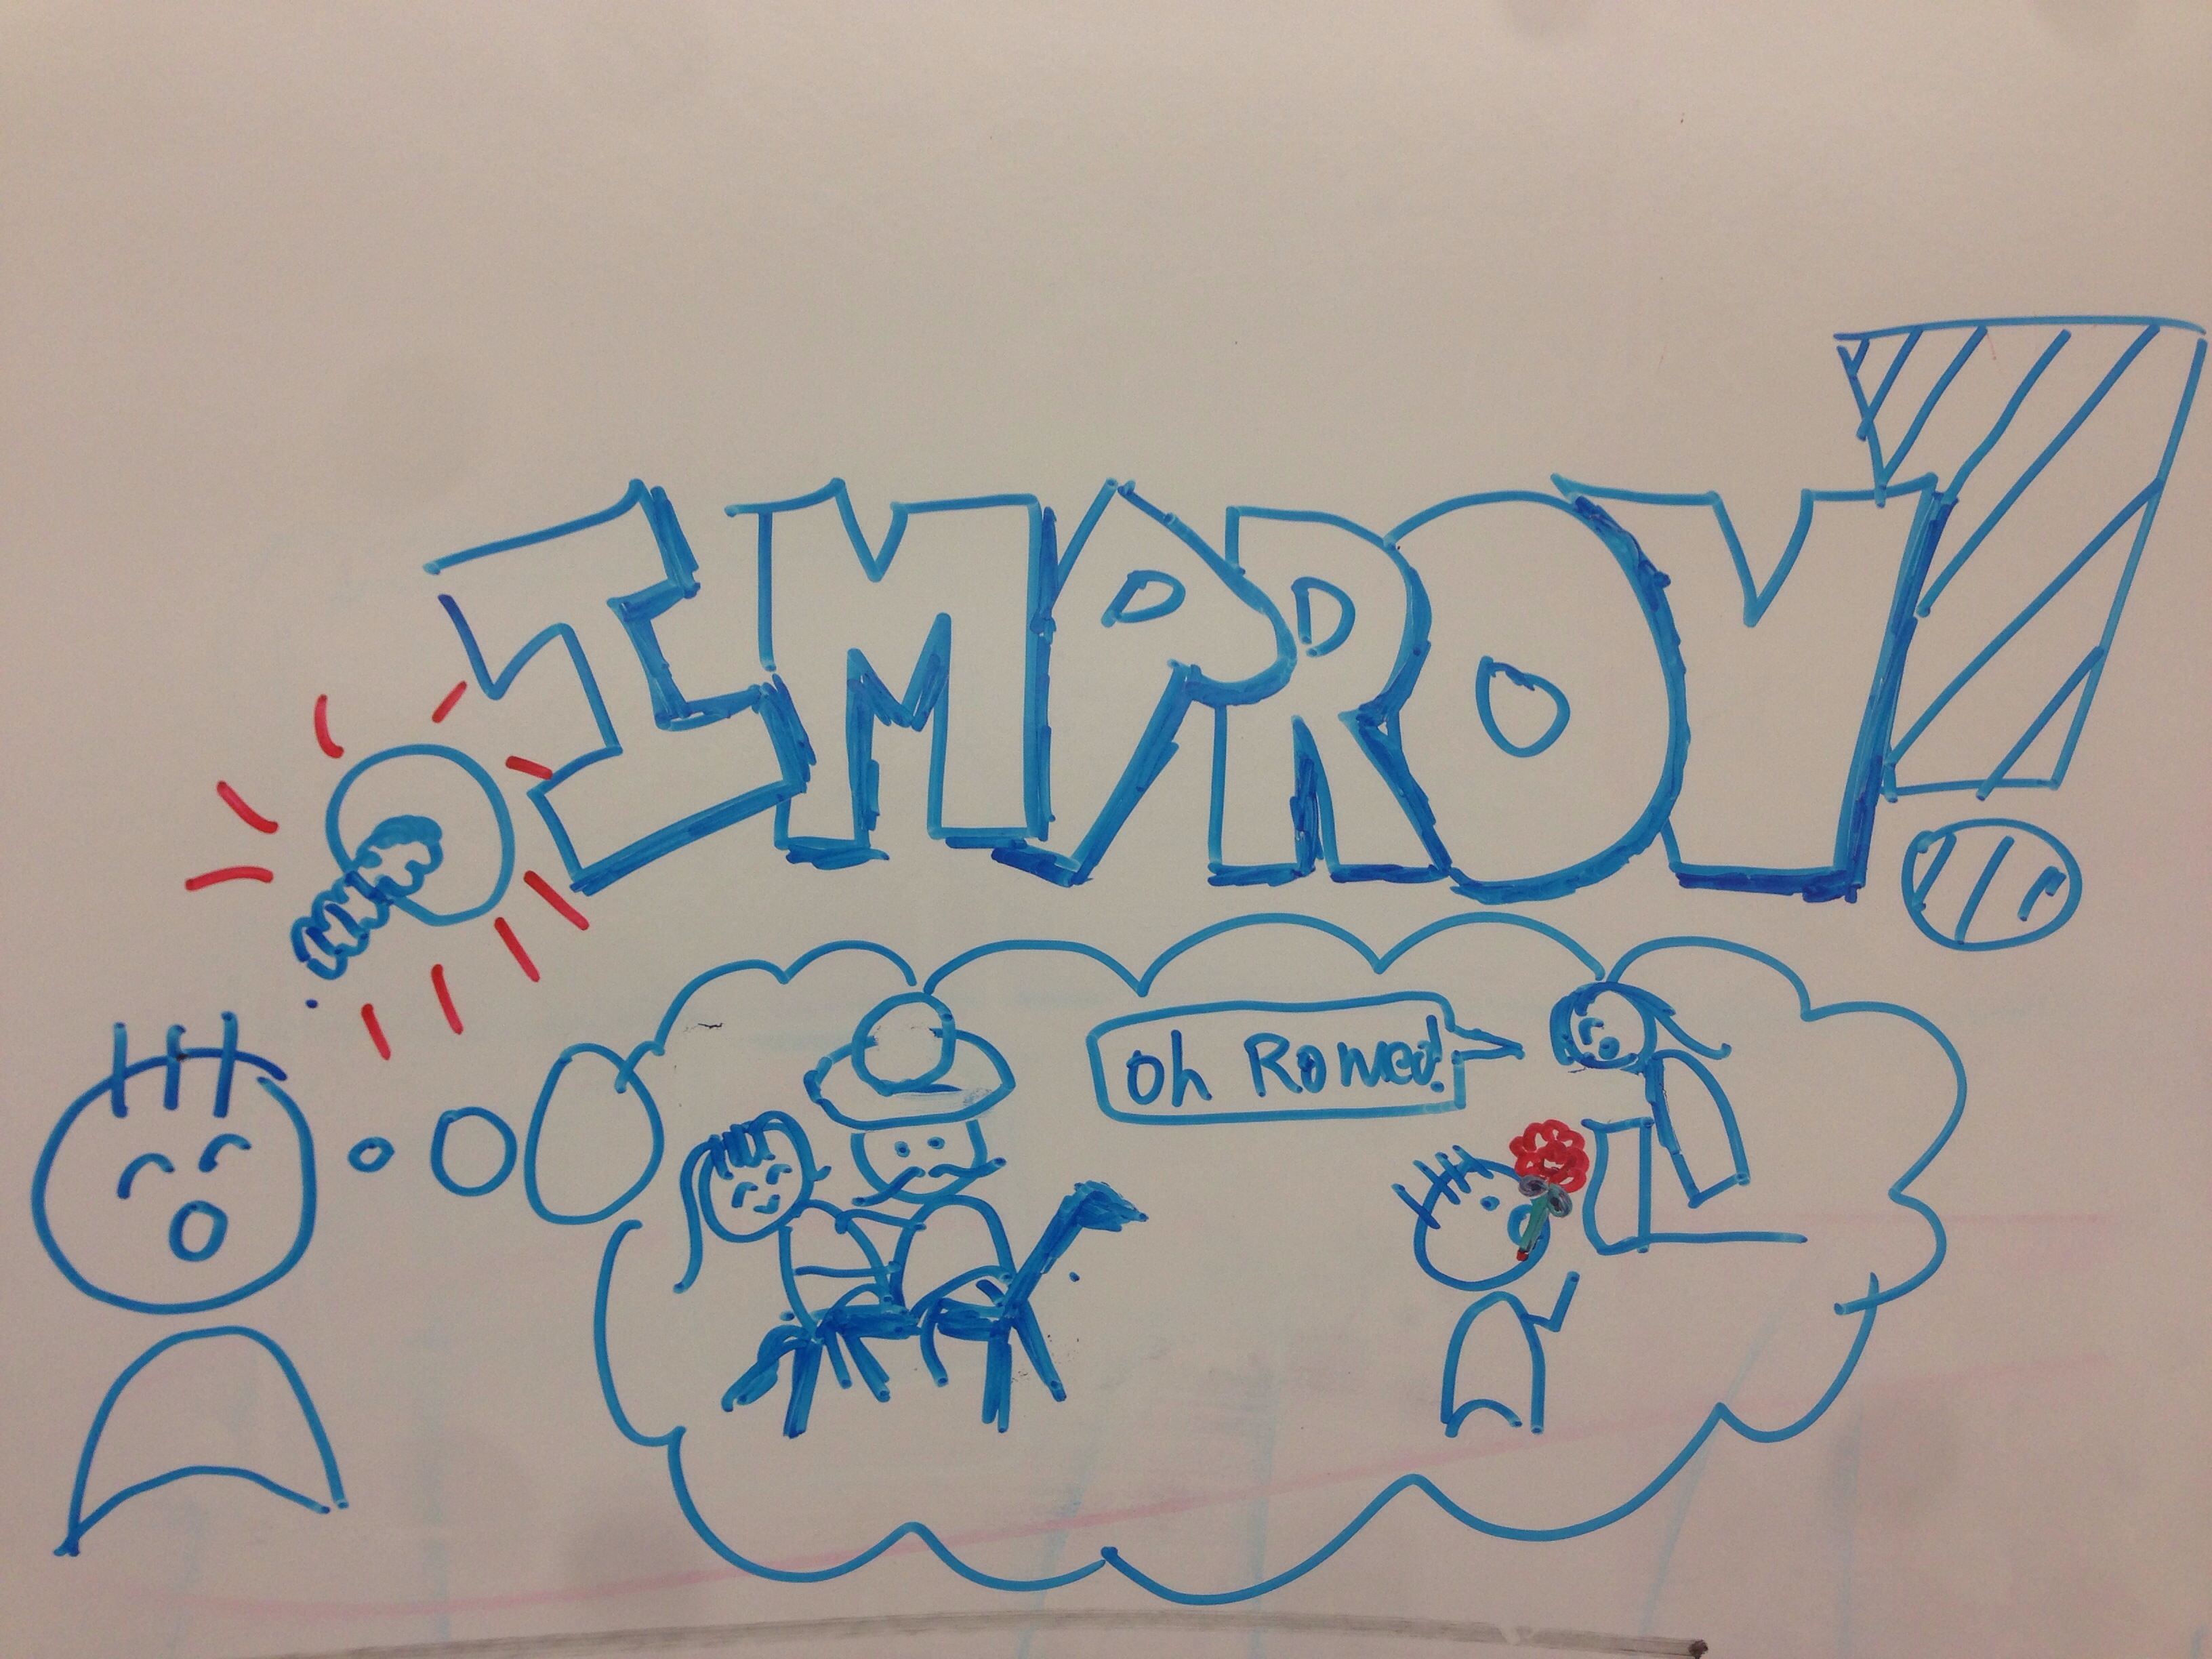 IMPROV!
Oh Romeo!